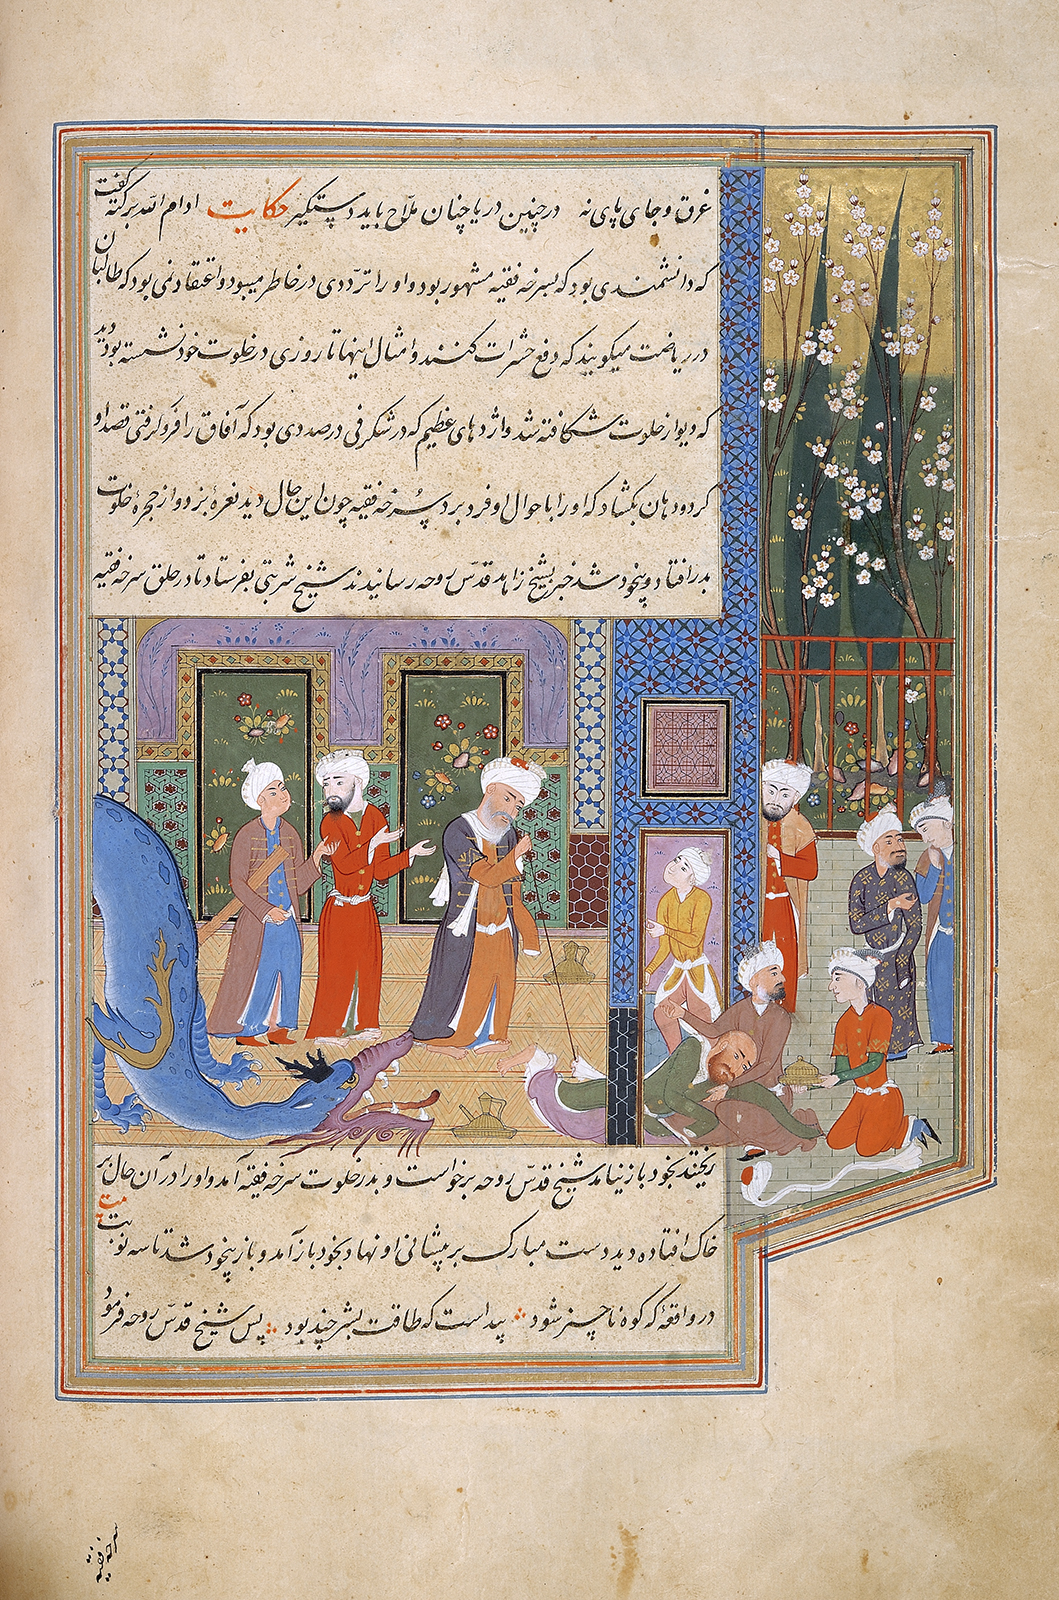 غرق و جای پای نه در چنین دریا چنان ملاح باید دستگیر حکایت ادام الله برکته گفت
که دانشمندی بود که بسرخه فقیه مشهور بود و او را ترددی در خاطر میبود و اعتقاد نمی بود که طالبان
در ریاضت میگویند که دفع حشرات کنند و امثال اینها تا روزی در خلوت خود نشسته بود دید
که دیوار خلوت شکافته شد و اژدهای عظیم که در شگرفی در صددی بود که آفاق را فرو گرفتی قصد او
کرد و دهان بگشاد که او را با حوال او فرو برد سرخه فقیه چون این حال دید نعره بزد و از حجره خلوت
بدر افتاد و بیخود شد خبر بشیخ زاهد قدس روحه رسانیدند شیخ شربتی بفرستاد تا در حلق سرخه فقیه
ریختند بخود باز نیامد شیخ قدس روحه برخواست و بدر خلوت سرخه فقیه آمد و او را در آن حال بر
خاک افتاده دید دست مبارک بر پیشانی او نهاد بخود باز آمد و باز بیخود شد تا سه نوبت بیت
در واقعه که کوه ناچیز شود پیداست که طاقت بشر چند بود پس شیخ قدس روحه فرمود